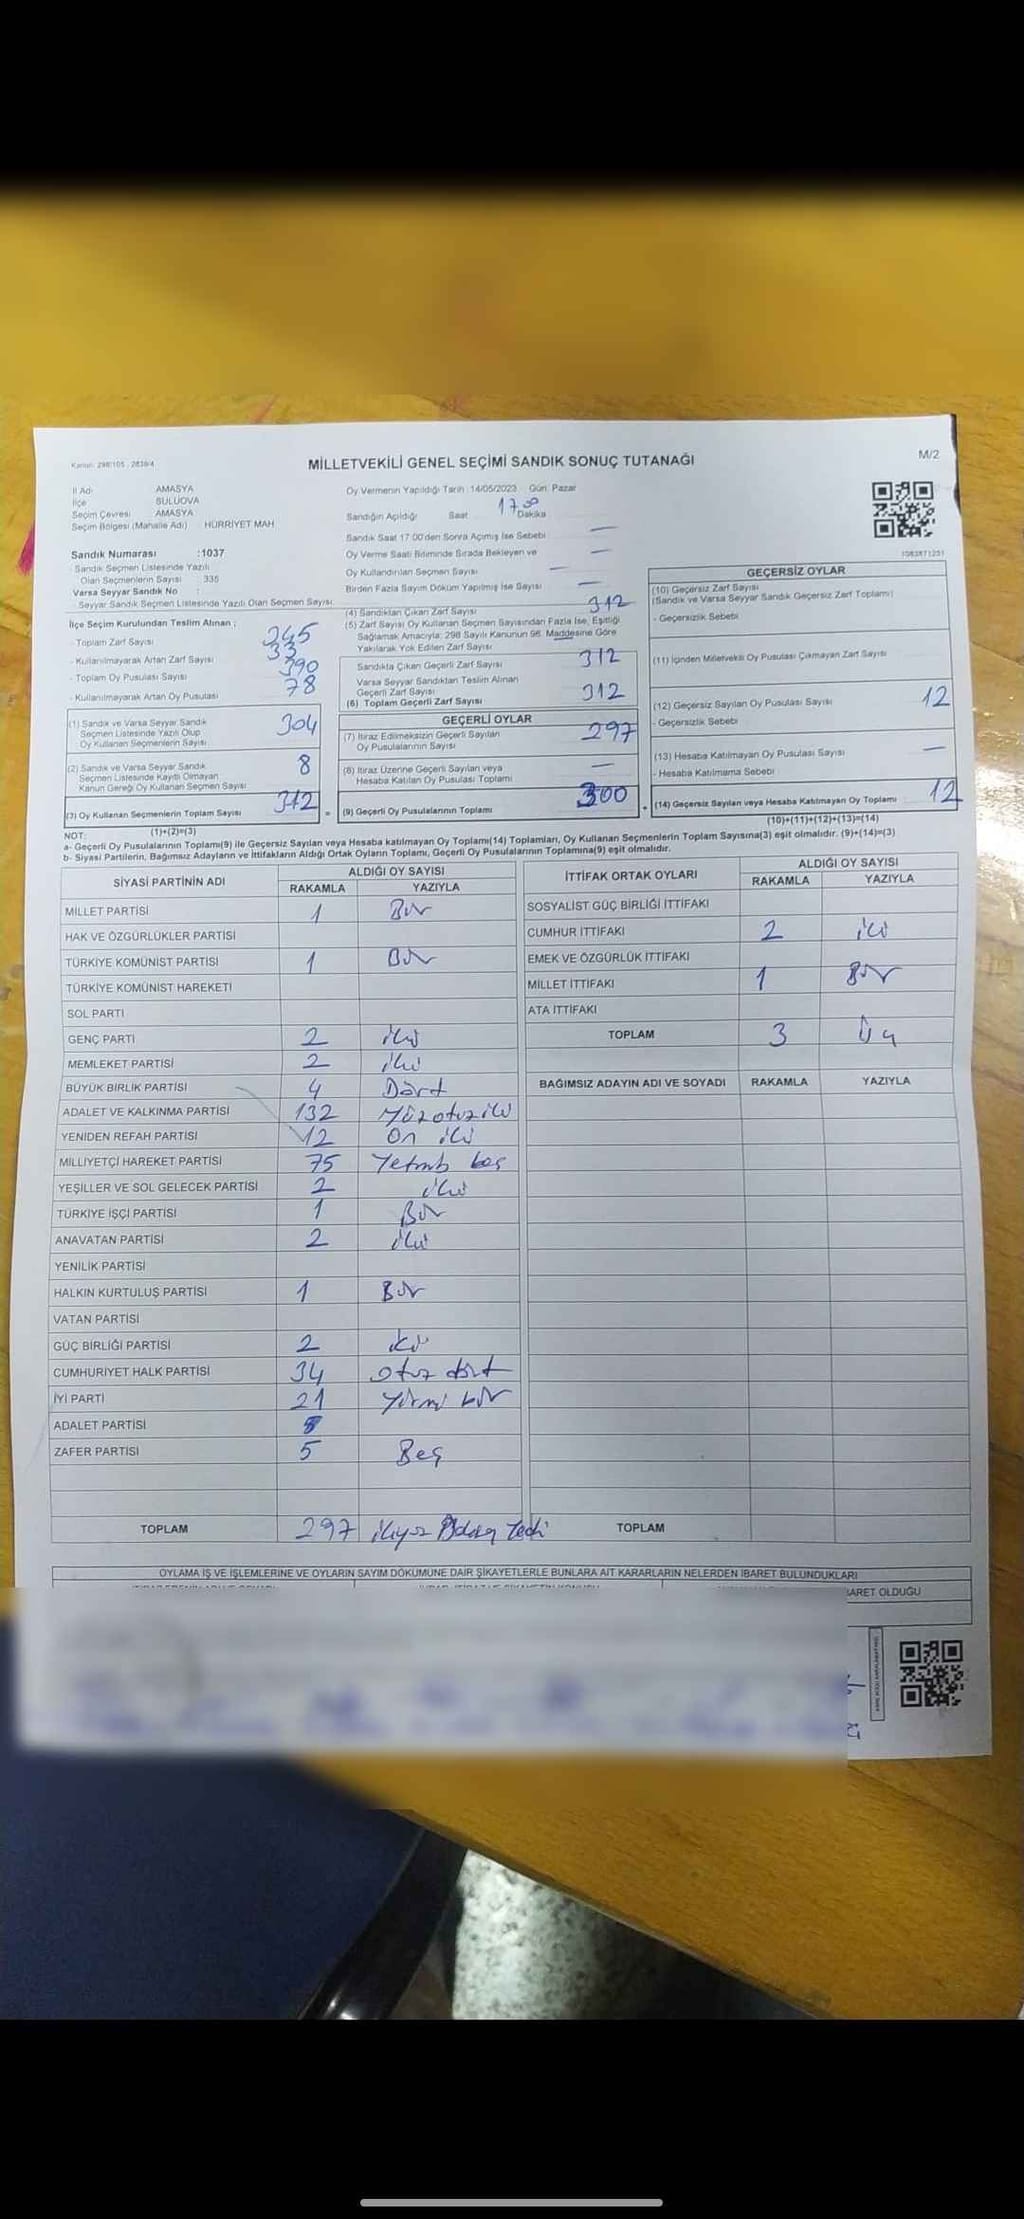 Kanun: 298/105 - 2839/4
MİLLETVEKİLİ GENEL SEÇİMİ SANDIK SONUÇ TUTANAĞI
M/2
İl Adı AMASYA
İlçe SULUOVA
Seçim Çevresi AMASYA
Seçim Bölgesi (Mahalle Adı) HÜRRİYET MAH
Sandık Numarası :1037
Sandık Seçmen Listesinde Yazılı
Olan Seçmenlerin Sayısı : 335
Varsa Seyyar Sandık No :
Seyyar Sandık Seçmen Listesinde Yazılı Olan Seçmen Sayısı:
İlçe Seçim Kurulundan Teslim Alınan ;
- Toplam Zarf Sayısı
- Kullanılmayarak Artan Zarf Sayısı 33
- Toplam Oy Pusulası Sayısı 390
- Kullanılmayarak Artan Oy Pusulası 78
(1) Sandık ve Varsa Seyyar Sandık
Seçmen Listesinde Yazılı Olup
Oy Kullanan Seçmenlerin Sayısı 304
(2) Sandık ve Varsa Seyyar Sandık
Seçmen Listesinde Kayıtlı Olmayan
Kanun Gereği Oy Kullanan Seçmen Sayısı 8
(3) Oy Kullanan Seçmenlerin Toplam Sayısı 312
(1)+(2)=(3)
Oy Vermenin Yapıldığı Tarih :14/05/2023 Gün: Pazar
Sandığın Açıldığı Saat 17 00 Dakika
Sandık Saat 17:00'den Sonra Açılmış İse Sebebi —
Oy Verme Saati Bitiminde Sırada Bekleyen ve —
Oy Kullandırılan Seçmen Sayısı —
Birden Fazla Sayım Döküm Yapılmış İse Sayısı —
(4) Sandıktan Çıkan Zarf Sayısı 312
(5) Zarf Sayısı Oy Kullanan Seçmen Sayısından Fazla İse, Eşitliği
Sağlamak Amacıyla; 298 Sayılı Kanunun 98. Maddesine Göre
Yakılarak Yok Edilen Zarf Sayısı
Sandıkta Çıkan Geçerli Zarf Sayısı 312
Varsa Seyyar Sandıktan Teslim Alınan
Geçerli Zarf Sayısı
(6) Toplam Geçerli Zarf Sayısı 312
GEÇERLİ OYLAR
(7) İtiraz Edilmeksizin Geçerli Sayılan
Oy Pusulalarının Sayısı 297
(8) İtiraz Üzerine Geçerli Sayılan veya
Hesaba Katılan Oy Pusulası Toplamı —
(9) Geçerli Oy Pusulalarının Toplamı 300
1083871251
GEÇERSİZ OYLAR
(10) Geçersiz Zarf Sayısı
(Sandık ve Varsa Seyyar Sandık Geçersiz Zarf Toplamı)
- Geçersizlik Sebebi
(11) İçinden Milletvekili Oy Pusulası Çıkmayan Zarf Sayısı
(12) Geçersiz Sayılan Oy Pusulası Sayısı 12
- Geçersizlik Sebebi
(13) Hesaba Katılmayan Oy Pusulası Sayısı —
- Hesaba Katılmama Sebebi
(14) Geçersiz Sayılan veya Hesaba Katılmayan Oy Toplamı 12
(10)+(11)+(12)+(13)=(14)
NOT:
a- Geçerli Oy Pusulalarının Toplamı(9) ile Geçersiz Sayılan veya Hesaba katılmayan Oy Toplamı(14) Toplamları, Oy Kullanan Seçmenlerin Toplam Sayısına(3) eşit olmalıdır. (9)+(14)=(3)
b- Siyasi Partilerin, Bağımsız Adayların ve İttifakların Aldığı Ortak Oyların Toplamı, Geçerli Oy Pusulalarının Toplamına(9) eşit olmalıdır.
SİYASİ PARTİNİN ADI ALDIĞI OY SAYISI
RAKAMLA YAZIYLA
MİLLET PARTİSİ 1 Bir
HAK VE ÖZGÜRLÜKLER PARTİSİ
TÜRKİYE KOMÜNİST PARTİSİ 1 Bir
TÜRKİYE KOMÜNİST HAREKETİ
SOL PARTİ
GENÇ PARTİ 2 iki
MEMLEKET PARTİSİ 2 iki
BÜYÜK BİRLİK PARTİSİ 4 Dört
ADALET VE KALKINMA PARTİSİ 132 Yüzotuziki
YENİDEN REFAH PARTİSİ 12 On iki
MİLLİYETÇİ HAREKET PARTİSİ 75 Yetmiş beş
YEŞİLLER VE SOL GELECEK PARTİSİ 2 iki
TÜRKİYE İŞÇİ PARTİSİ 1 Bir
ANAVATAN PARTİSİ 2 iki
YENİLİK PARTİSİ
HALKIN KURTULUŞ PARTİSİ 1 Bir
VATAN PARTİSİ
GÜÇ BİRLİĞİ PARTİSİ 2 iki
CUMHURİYET HALK PARTİSİ 34 otuz dört
İYİ PARTİ 21 Yirmi bir
ADALET PARTİSİ
ZAFER PARTİSİ 5 Beş
TOPLAM 297
İTTİFAK ORTAK OYLARI ALDIĞI OY SAYISI
RAKAMLA YAZIYLA
SOSYALİST GÜÇ BİRLİĞİ İTTİFAKI
CUMHUR İTTİFAKI 2 iki
EMEK VE ÖZGÜRLÜK İTTİFAKI
MİLLET İTTİFAKI 1 Bir
ATA İTTİFAKI
TOPLAM 3 Üç
BAĞIMSIZ ADAYIN ADI VE SOYADI RAKAMLA YAZIYLA
TOPLAM
OYLAMA İŞ VE İŞLEMLERİNE VE OYLARIN SAYIM DÖKÜMÜNE DAİR ŞİKAYETLERLE BUNLARA AİT KARARLARIN NELERDEN İBARET BULUNDUKLARI
İBARET OLDUĞU